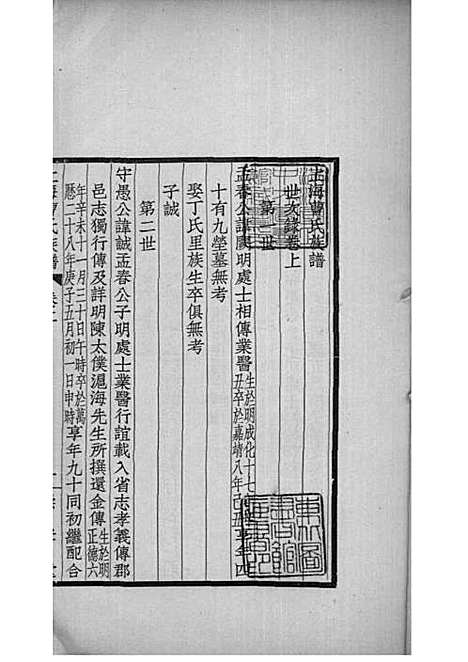 上海曹氏族譜
世次錄卷上
第一世
孟春公諱 明處士相傳業醫生於明成化十七年 丑卒於嘉靖八年己丑享年四
十有九塋墓無考
娶丁氏里族生卒俱無考
子誠
第二世
守愚公諱誠孟春公子明處士業醫行誼載入省志孝義傳郡
邑志獨行傳及詳明陳太僕滬海先生所撰還金傳生於明正德六
年辛未十一月三十日午時卒於萬曆二十八年庚子五月初一日申時享年九十同初繼配合
上海曹氏族譜 卷二